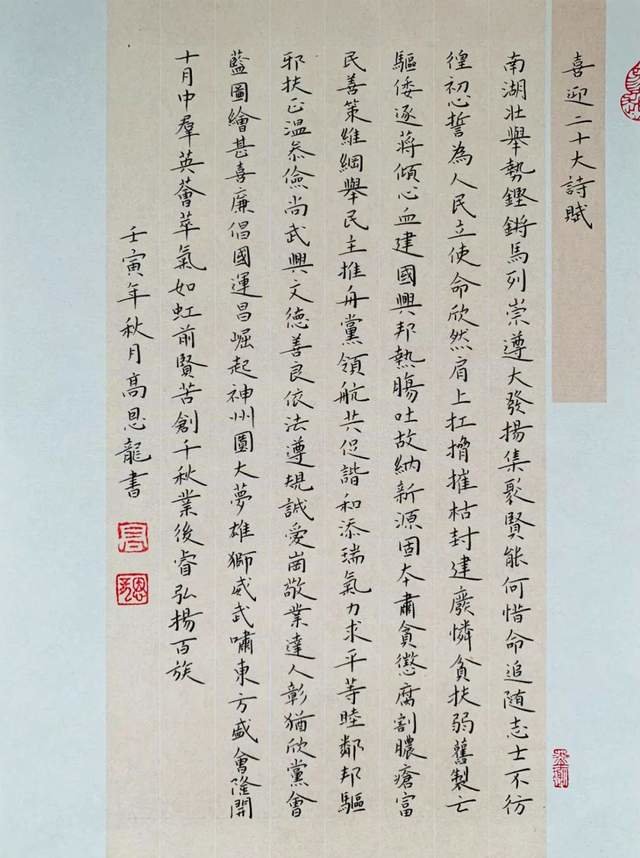 喜迎二十大詩賦
南湖壯舉勢鏗鏘馬列崇尊大發揚集聚賢能何惜命追随志士不彷
徨初心誓為人民立使命欣然肩上扛摧枯封建廢憐貧扶弱舊製亡
驅倭逐蔣傾心血建國興邦熱腸吐故納新源固本肅貪懲腐割膿瘡富
民善策維綱舉民主推舟黨領航共促諧和添瑞氣力求平等睦鄰邦驅
邪扶正溫恭儉尚武興文德善良依法遵規誠愛崗敬業達人彰猶欣黨會
藍圖繪甚喜廉倡國運昌崛起神州圓大夢雄獅威武嘯東方盛會隆開
十月中羣英薈萃氣如虹前賢苦創千秋業後睿弘揚百族
壬寅年秋月高恩龍書